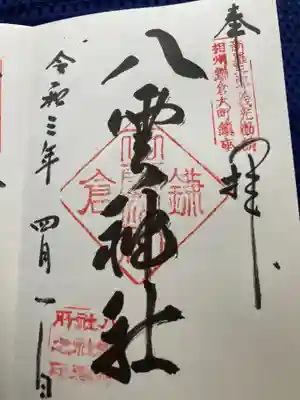 奉拝
相州鎌倉大町鎮座
八雲神社
鎌倉
令和三年四月一日